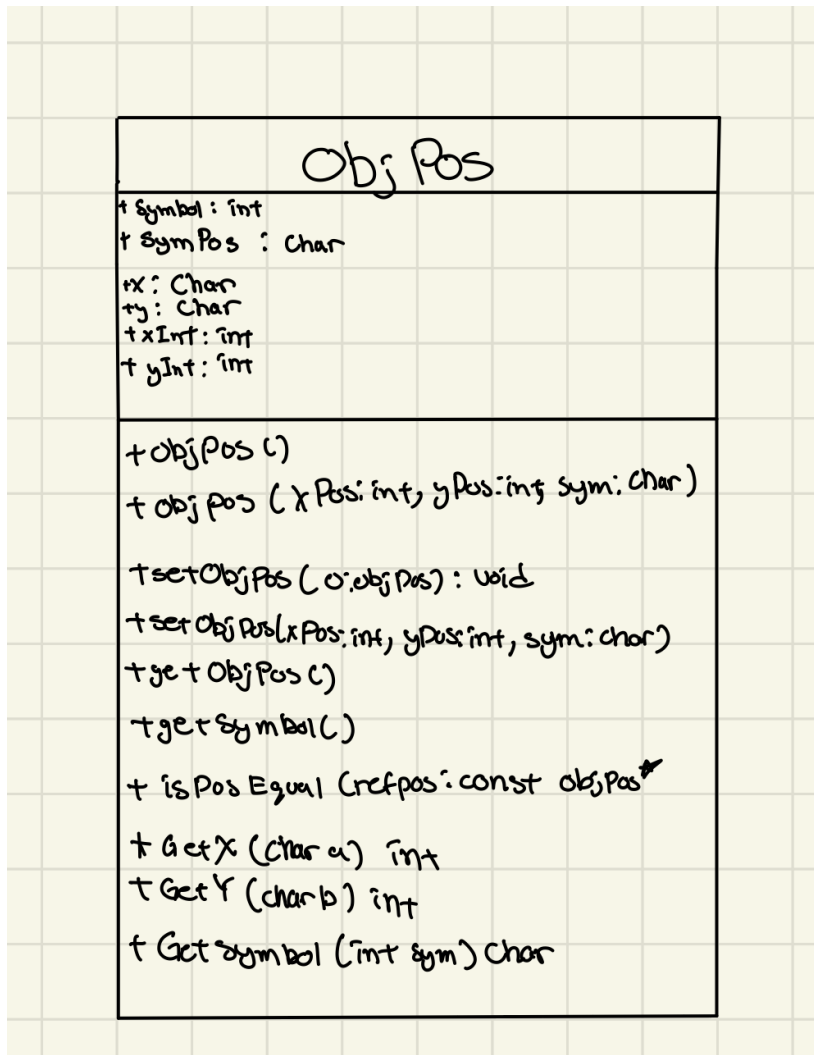 Obj Pos
+ Symbol : int
+ SymPos : Char
+x : Char
+y : Char
+xInt : int
+ yInt : int
+objPos ()
+ objpos (xPos: int, yPos: int, sym: char)
+setObjPos (o:objpos) : void
+setObjPos(xPos: int, yPos: int, sym: char)
+getObjPos ()
+getSymbol()
+ isPosEqual (refpos: const objPos*
+ GetX (char a) int
+ GetY (char b) int
+ GetSymbol (int sym) Char